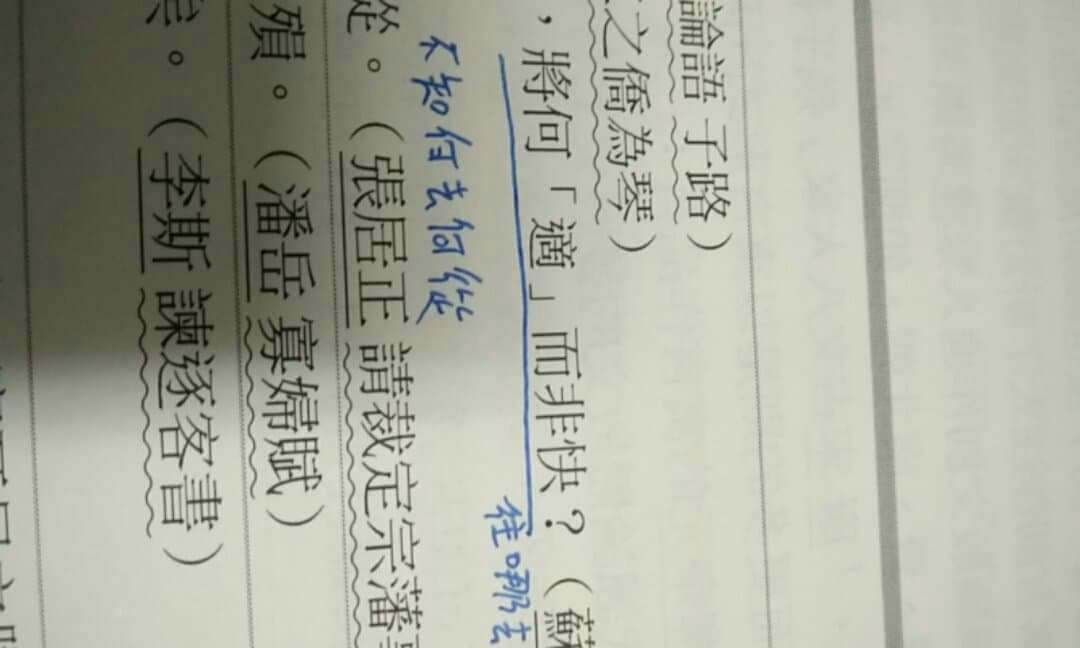 論語 子路）
之僑為琴）
，將何「適」而非快？（蘇
往哪去
不知何去何從
從。（張居正 請裁定宗藩
殞。（潘岳 寡婦賦）
。（李斯 諫逐客書）